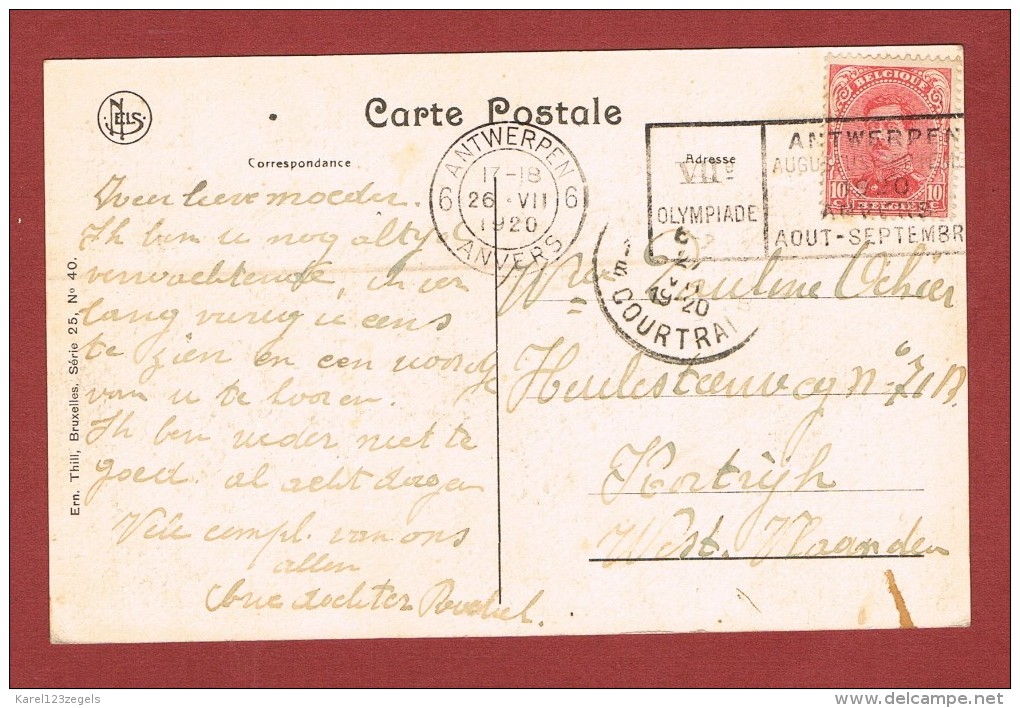 NELS
Carte Postale
Correspondance
Adresse
ANTWERPEN
6 6
17-18
26 VII
1920
ANVERS
VIIe
OLYMPIADE
ANTWERPEN
1920
ANVERS
AOUT-SEPTEMBR
BELGIQUE
10c 10c
BELGIE
1920
COURTRAI
lieve moeder.
Ik ben u nog altyd
verwachtende, ik
lang u eens
te zien en een woord
van u te hooren.
Ik ben weder niet te
goed al acht dagen
Vele compl. van ons
allen
dochter Rachel.
Pauline
Heulesteenweg N-
Kortrijk
West. Vlaanderen
Ern. Thill, Bruxelles, Série 25, No 40.
Karel123zegels
delcampe.net